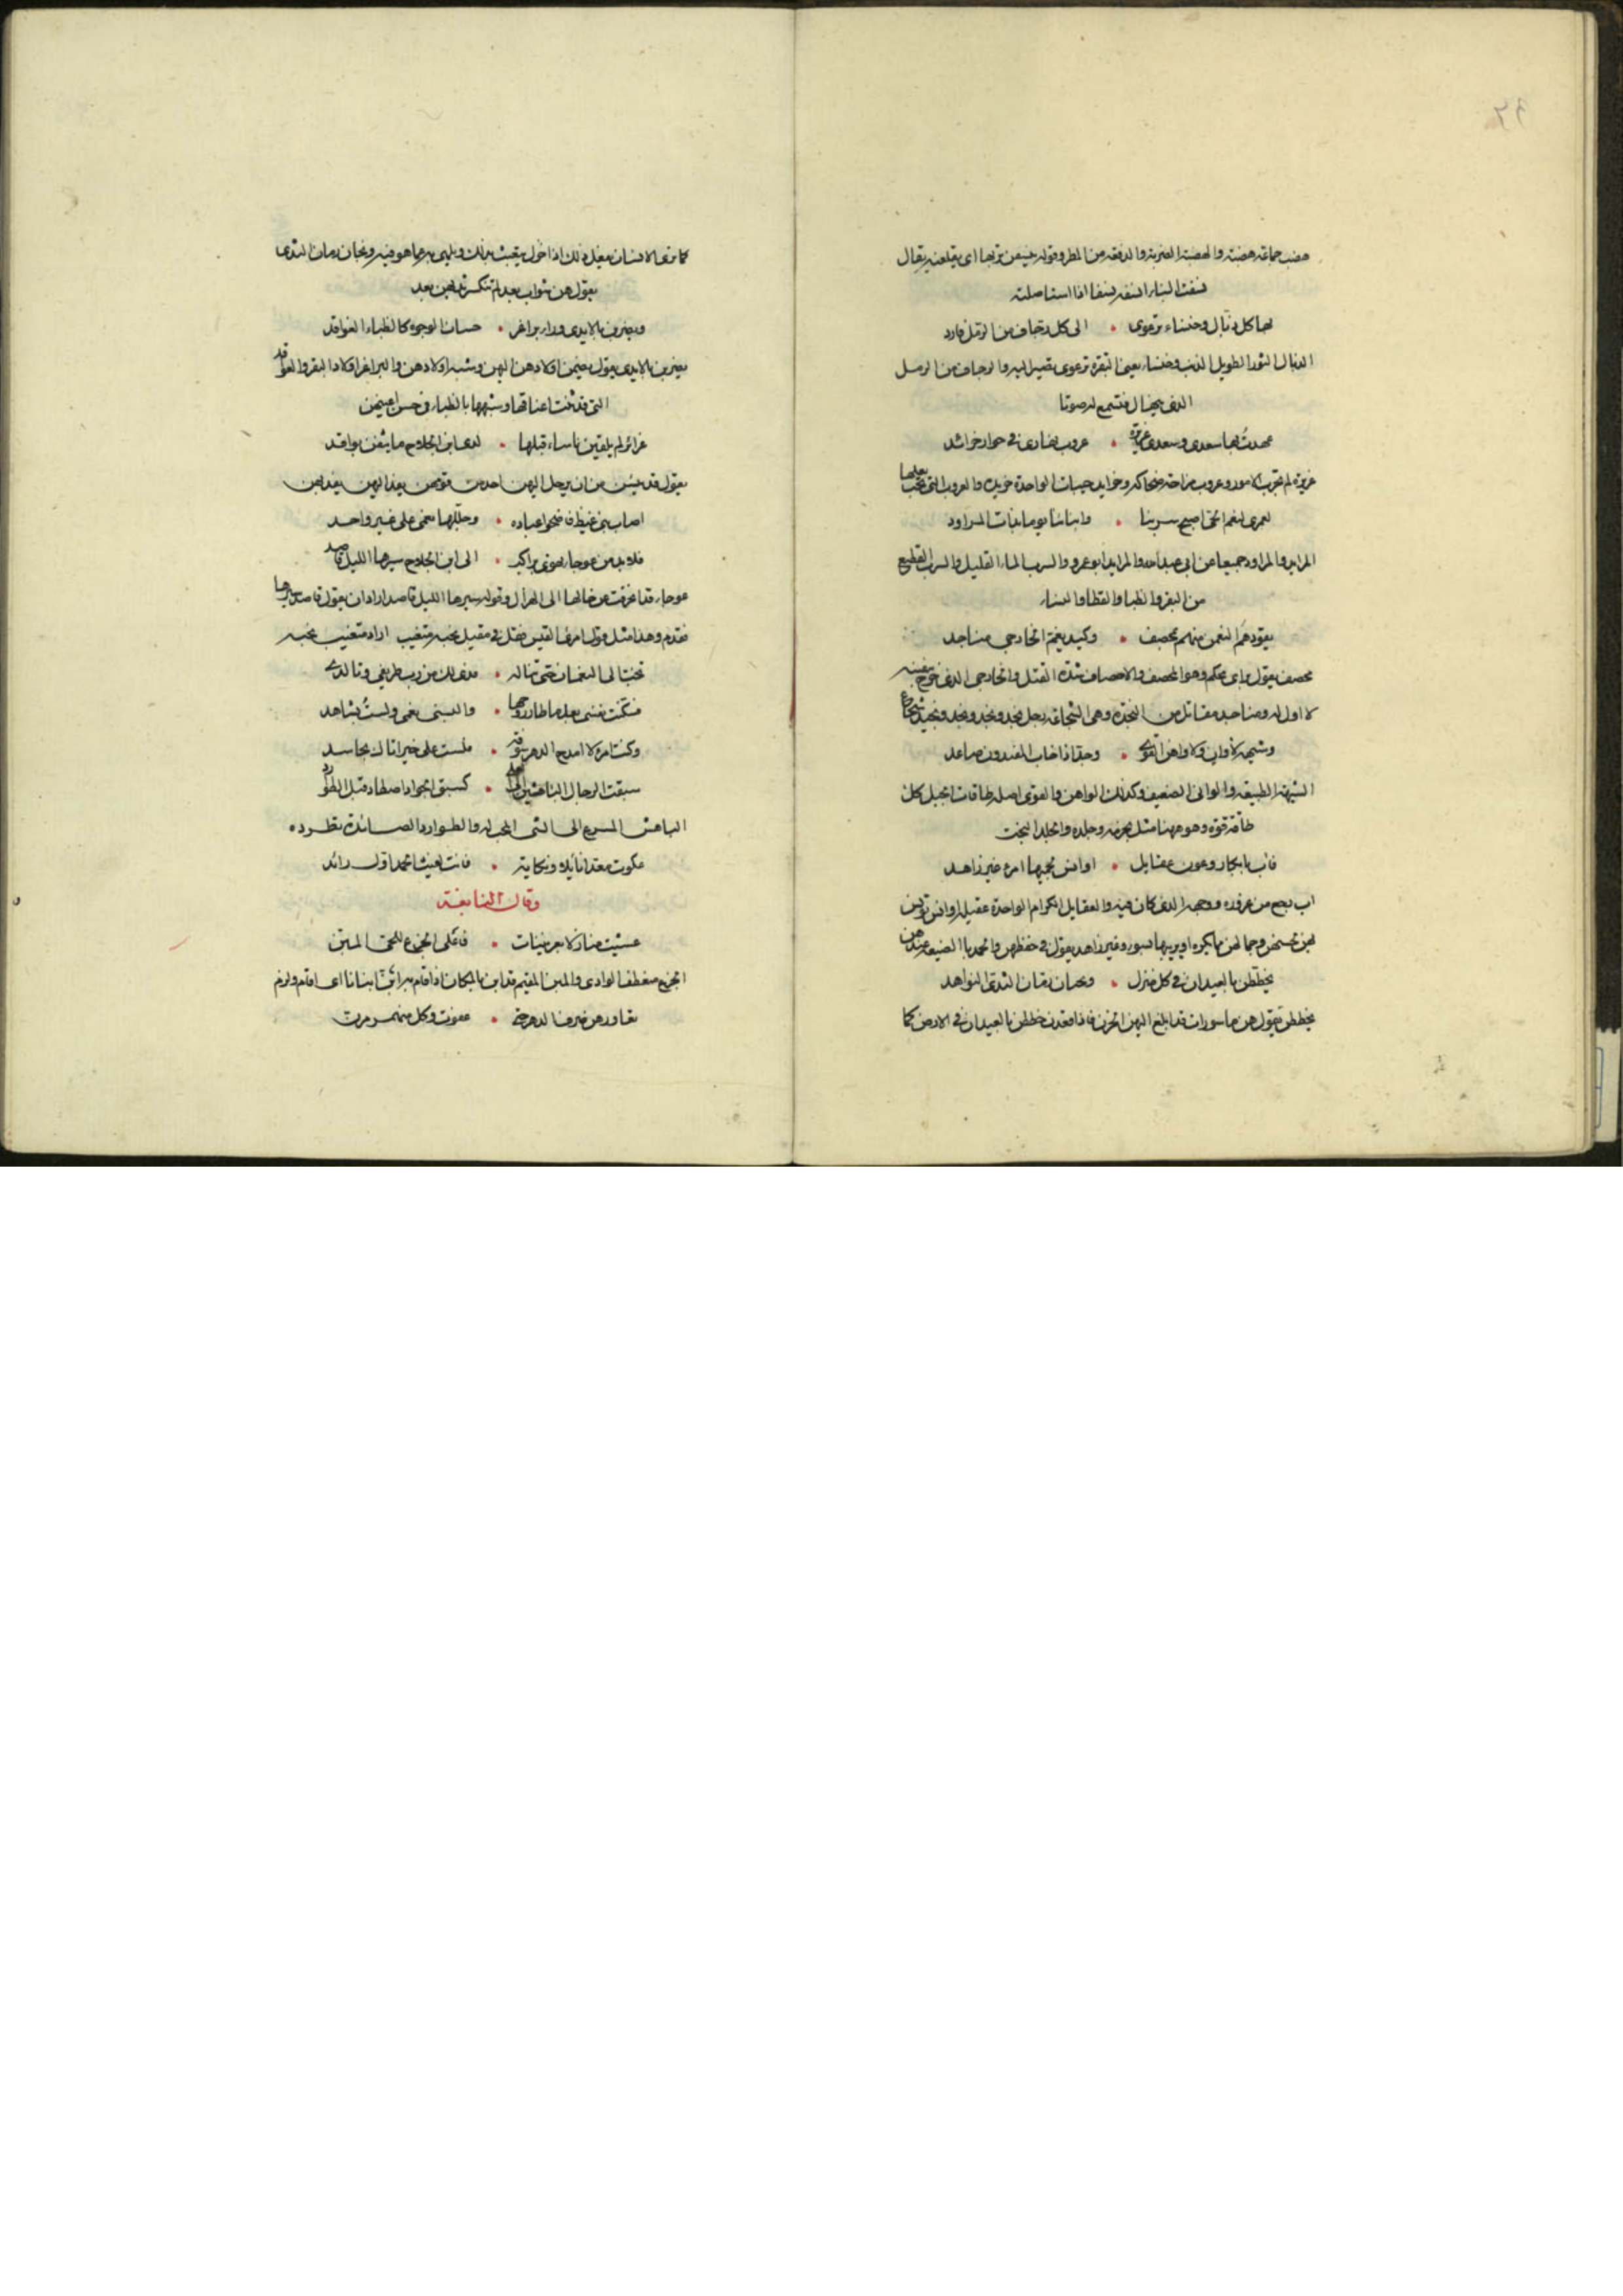 ٩٢
هضب جماعة هضبة والهضبة الضربة والدفعة من المطر وقوله ينسفن تربها اى يقلعنه يقال
نسفت البناء انسفه نسفا اذا استاصلته
لها كل ذيال وخنساء ترعوى • الى كل رجاف من الرمل فارد
الذيال الثور الطويل الذنب وخنساء يعنى البقرة ترعوى تصير اليه والرجاف من الرمل
الذى ينهال فتسمع له صوتا
عهدت بها سعدى وسعدى غريرة • عروب تهادى فى جوار خرائد
غريرة لم تجرب الامور وعروب مزاحة ضحاكة وخرايد حييات الواحدة خريدة والعروب التى تحب بعلها
لعمرى لنعم الحى صبح سربنا • وابياتنا يوما بذات المراود
المرايد والمراود جميعا عن ابى عبيدة والمرايد ابو عمرو والسرب الماء القليل والسرب القطيع
من البقر والظبا والقطا والنساء
يقودهم النعمن منهم بمحصف • وكيد يغم الخارجى مناجد
محصف يقول براى محكم وهو المحصف والاحصاف شدة الفتل والخارجى الذى خرج بنفسه
لا اول له ومناجد مقاتل من النجدة وهى الشجاعة رجل نجد ونجد ونجد ونجيد شجاع
وشيمة لا وان ولا واهن القوى • وجد اذا خاب المفيدون صاعد
الشيمة الطبيعة والوانى الضعيف وكذلك الواهن والقوى اصله طاقات الحبل كل
طاقة قوة وهو مهنا مثل لحزمه وجلده والجد البخت
فآب بابكار وعون عقايل • اوانس يحميها امرء غير زاهد
آب رجع من غزوه ووجهه الذى كان فيه والعقايل الكرام الواحدة عقيلة اوانس تؤنس
لهن بحسنهن وجمالهن ما يكره او يريبها بسوء وغير زاهد يقول فى حفظهن والحمد بالصنيعة عندهن
يخططن بالعيدان فى كل منزل • ويخبان رمان الثدى النواهد
يخططن يقول هن ماسورات قد ابلغ اليهن الحزن فاذا قعدن خططن بالعيدان فى الارض كما
كما ترى الانسان يفعل ذلك اذا خلا يعبث بذلك ويلهى به عما هو فيه ويخبان رمان الثدى
يقول هن شواب بعد لم تنكسر ثديهن بعد
ويضربن بالايدى وراء براغز • حسان الوجوه كالظباء العواقد
يضربن بالايدى يقول يحمين اولادهن اليهن وشبه اولادهن والبراغز اولاد البقر والعواقد
التى قد ثنت اعناقها وشبهها بالظباء فى حسن اعينهن
غرائر لم يلقين باساء قبلها • لدى ابن الجلاح ما يثقن بوافد
يقول قد يئسن من ان يرحل اليهن احد من قومهن يفد اليهن يفديهن
اصاب بنى غيظ فاضحوا عباده • وجللها نعمى على غير واحد
فلا بد من عوجاء تهوى براكب • الى ابن الجلاح سيرها الليل قاصد
عوجاء قد اعوجت من حالها الى الهزال وقوله سيرها الليل قاصد اراد ان يقول قاصد سيرها
فقدم وهذا مثل قول امرئ القيس فظل فى مقيل نحسه متغيب اراد متغيب نحسه
تخب الى النعمان حتى تناله • فدى لك من رب طريفى وتالدى
فسكنت نفسى بعد ما طار روحها • والبستنى نعمى ولست بشاهد
وكنت امرء لا امدح الدهر سوقة • فلست على خير اتاك بحاسد
سبقت الرجال الباهشين الى العلى • كسبق الجواد اصطاد قبل الطوارد
الباهش المسرع الى الشى المحب له والطوارد الصائدة تطرده
علوت معدا نائلا ونكاية • فانت لغيث الحمد اول رائد
وقال النابغة
غشيت منازلا بعريتنات • فاعلى الجزع للحى المبن
الجزع منعطف الوادى والمبن المقيم قد ابن بالمكان اذا اقام به ابن يبن ابنانا اى اقام ولزم
تعاورهن صرف الدهر حتى • عفون وكل منهمر مرن